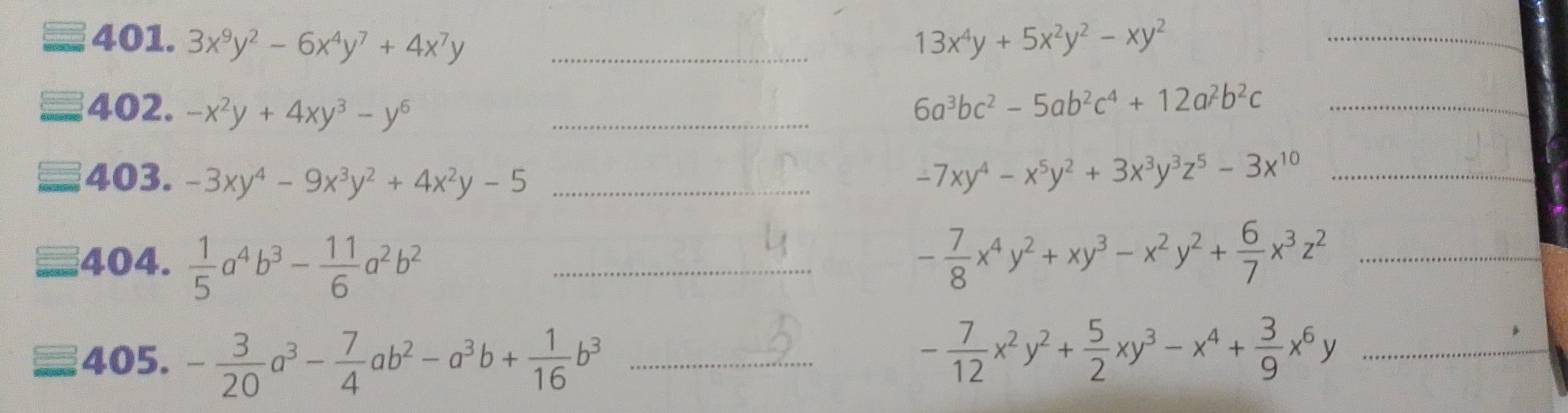 401. 3x⁹y² – 6x⁴y⁷ + 4x⁷y ........ 13x⁴y + 5x²y² – xy² ........
402. –x²y + 4xy³ – y⁶ ........ 6a³bc² – 5ab²c⁴ + 12a²b²c ........
403. –3xy⁴ – 9x³y² + 4x²y – 5 ........ –7xy⁴ – x⁵y² + 3x³y³z⁵ – 3x¹⁰ ........
404. 1/5 a⁴b³ – 11/6 a²b² ........ – 7/8 x⁴y² + xy³ – x²y² + 6/7 x³z² ........
405. – 3/20 a³ – 7/4 ab² – a³b + 1/16 b³ ........ – 7/12 x²y² + 5/2 xy³ – x⁴ + 3/9 x⁶y ........